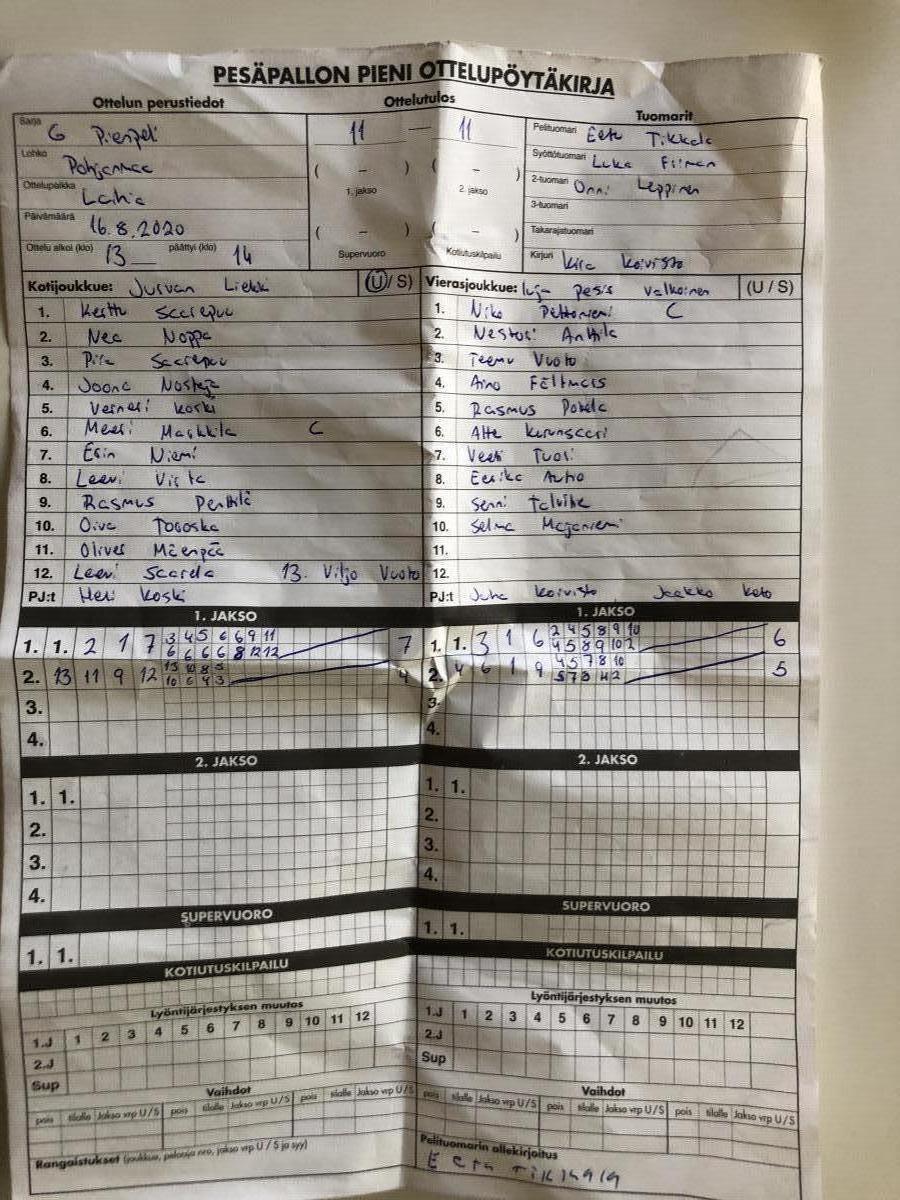 PESÄPALLON PIENI OTTELUPÖYTÄKIRJA
Ottelun perustiedot
Ottelutulos
Tuomarit
Sarja G Pienpeli
11 — 11
Pelituomari Eetu Tikkala
Lohko Pohjanmaa
( - ) ( - )
1. jakso 2. jakso
Syöttötuomari Luka Fiinan
Ottelupaikka Laihia
2-tuomari Onni Leppinen
3-tuomari
Päivämäärä 16.8.2020
( - ) ( - )
Takarajatuomari
Ottelu alkoi (klo) 13 päättyi (klo) 14
Supervuoro Kotiutuskilpailu
Kirjuri Kira Koivisto
Kotijoukkue: Jurvan Liekki (U/S)
1. Kerttu Saarepuu
2. Nea Noppa
3. Piia Saarepuu
4. Joona Nosteja
5. Verneri Koski
6. Meeri Markkila C
7. Erin Niemi
8. Leevi Viita
9. Rasmus Penttilä
10. Oiva Toooska
11. Oliver Mäenpää
12. Leevi Saarela 13. Viljo Vuoto
PJ:t Heri Koski
Vierasjoukkue: luja pesis valkoinen (U / S)
1. Niko Peltoniemi C
2. Nestori Anttila
3. Teemu Vuoto
4. Aino Fältmars
5. Rasmus Pohila
6. Atte Kurunsaari
7. Veeti Tuori
8. Eerika Autio
9. Senni Talvitie
10. Selma Majaniemi
11.
12.
PJ:t Juha Koivisto Jaakko Koto
1. JAKSO
1. 1. 2 1 7 3 4 5 6 6 9 11 7
6 6 6 6 8 12 12
2. 13 11 9 12 13 10 8 5 4
10 6 4 3
3.
4.
1. JAKSO
1. 1. 3 1 6 2 4 5 8 9 10 6
4 5 8 9 10 2
2. 4 6 1 9 4 5 7 8 10 5
5 7 8 4 2
3.
4.
2. JAKSO
1. 1.
2.
3.
4.
2. JAKSO
1. 1.
2.
3.
4.
SUPERVUORO
1. 1.
SUPERVUORO
1. 1.
KOTIUTUSKILPAILU
KOTIUTUSKILPAILU
Lyöntijärjestyksen muutos
1.J 1 2 3 4 5 6 7 8 9 10 11 12
2.J
Sup
Lyöntijärjestyksen muutos
1.J 1 2 3 4 5 6 7 8 9 10 11 12
2.J
Sup
Vaihdot
pois tilalle Jakso vrp U/S pois tilalle Jakso vrp U/S pois tilalle Jakso vrp U/S
Vaihdot
pois tilalle Jakso vrp U/S pois tilalle Jakso vrp U/S pois tilalle Jakso vrp U/S
Rangaistukset (joukkue, pelaaja nro, jakso vrp U / S ja syy)
Pelituomarin allekirjoitus
Eetu Tikkala